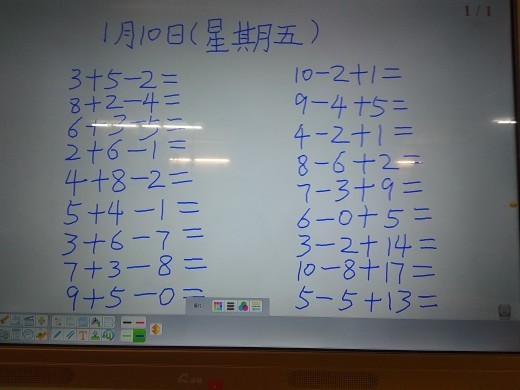 1/1
1月10日(星期五)
3+5-2=
8+2-4=
6+3-5=
2+6-1=
4+8-2=
5+4-1=
3+6-7=
7+3-8=
9+5-0=
10-2+1=
9-4+5=
4-2+1=
8-6+2=
7-3+9=
6-0+5=
3-2+14=
10-8+17=
5-5+13=